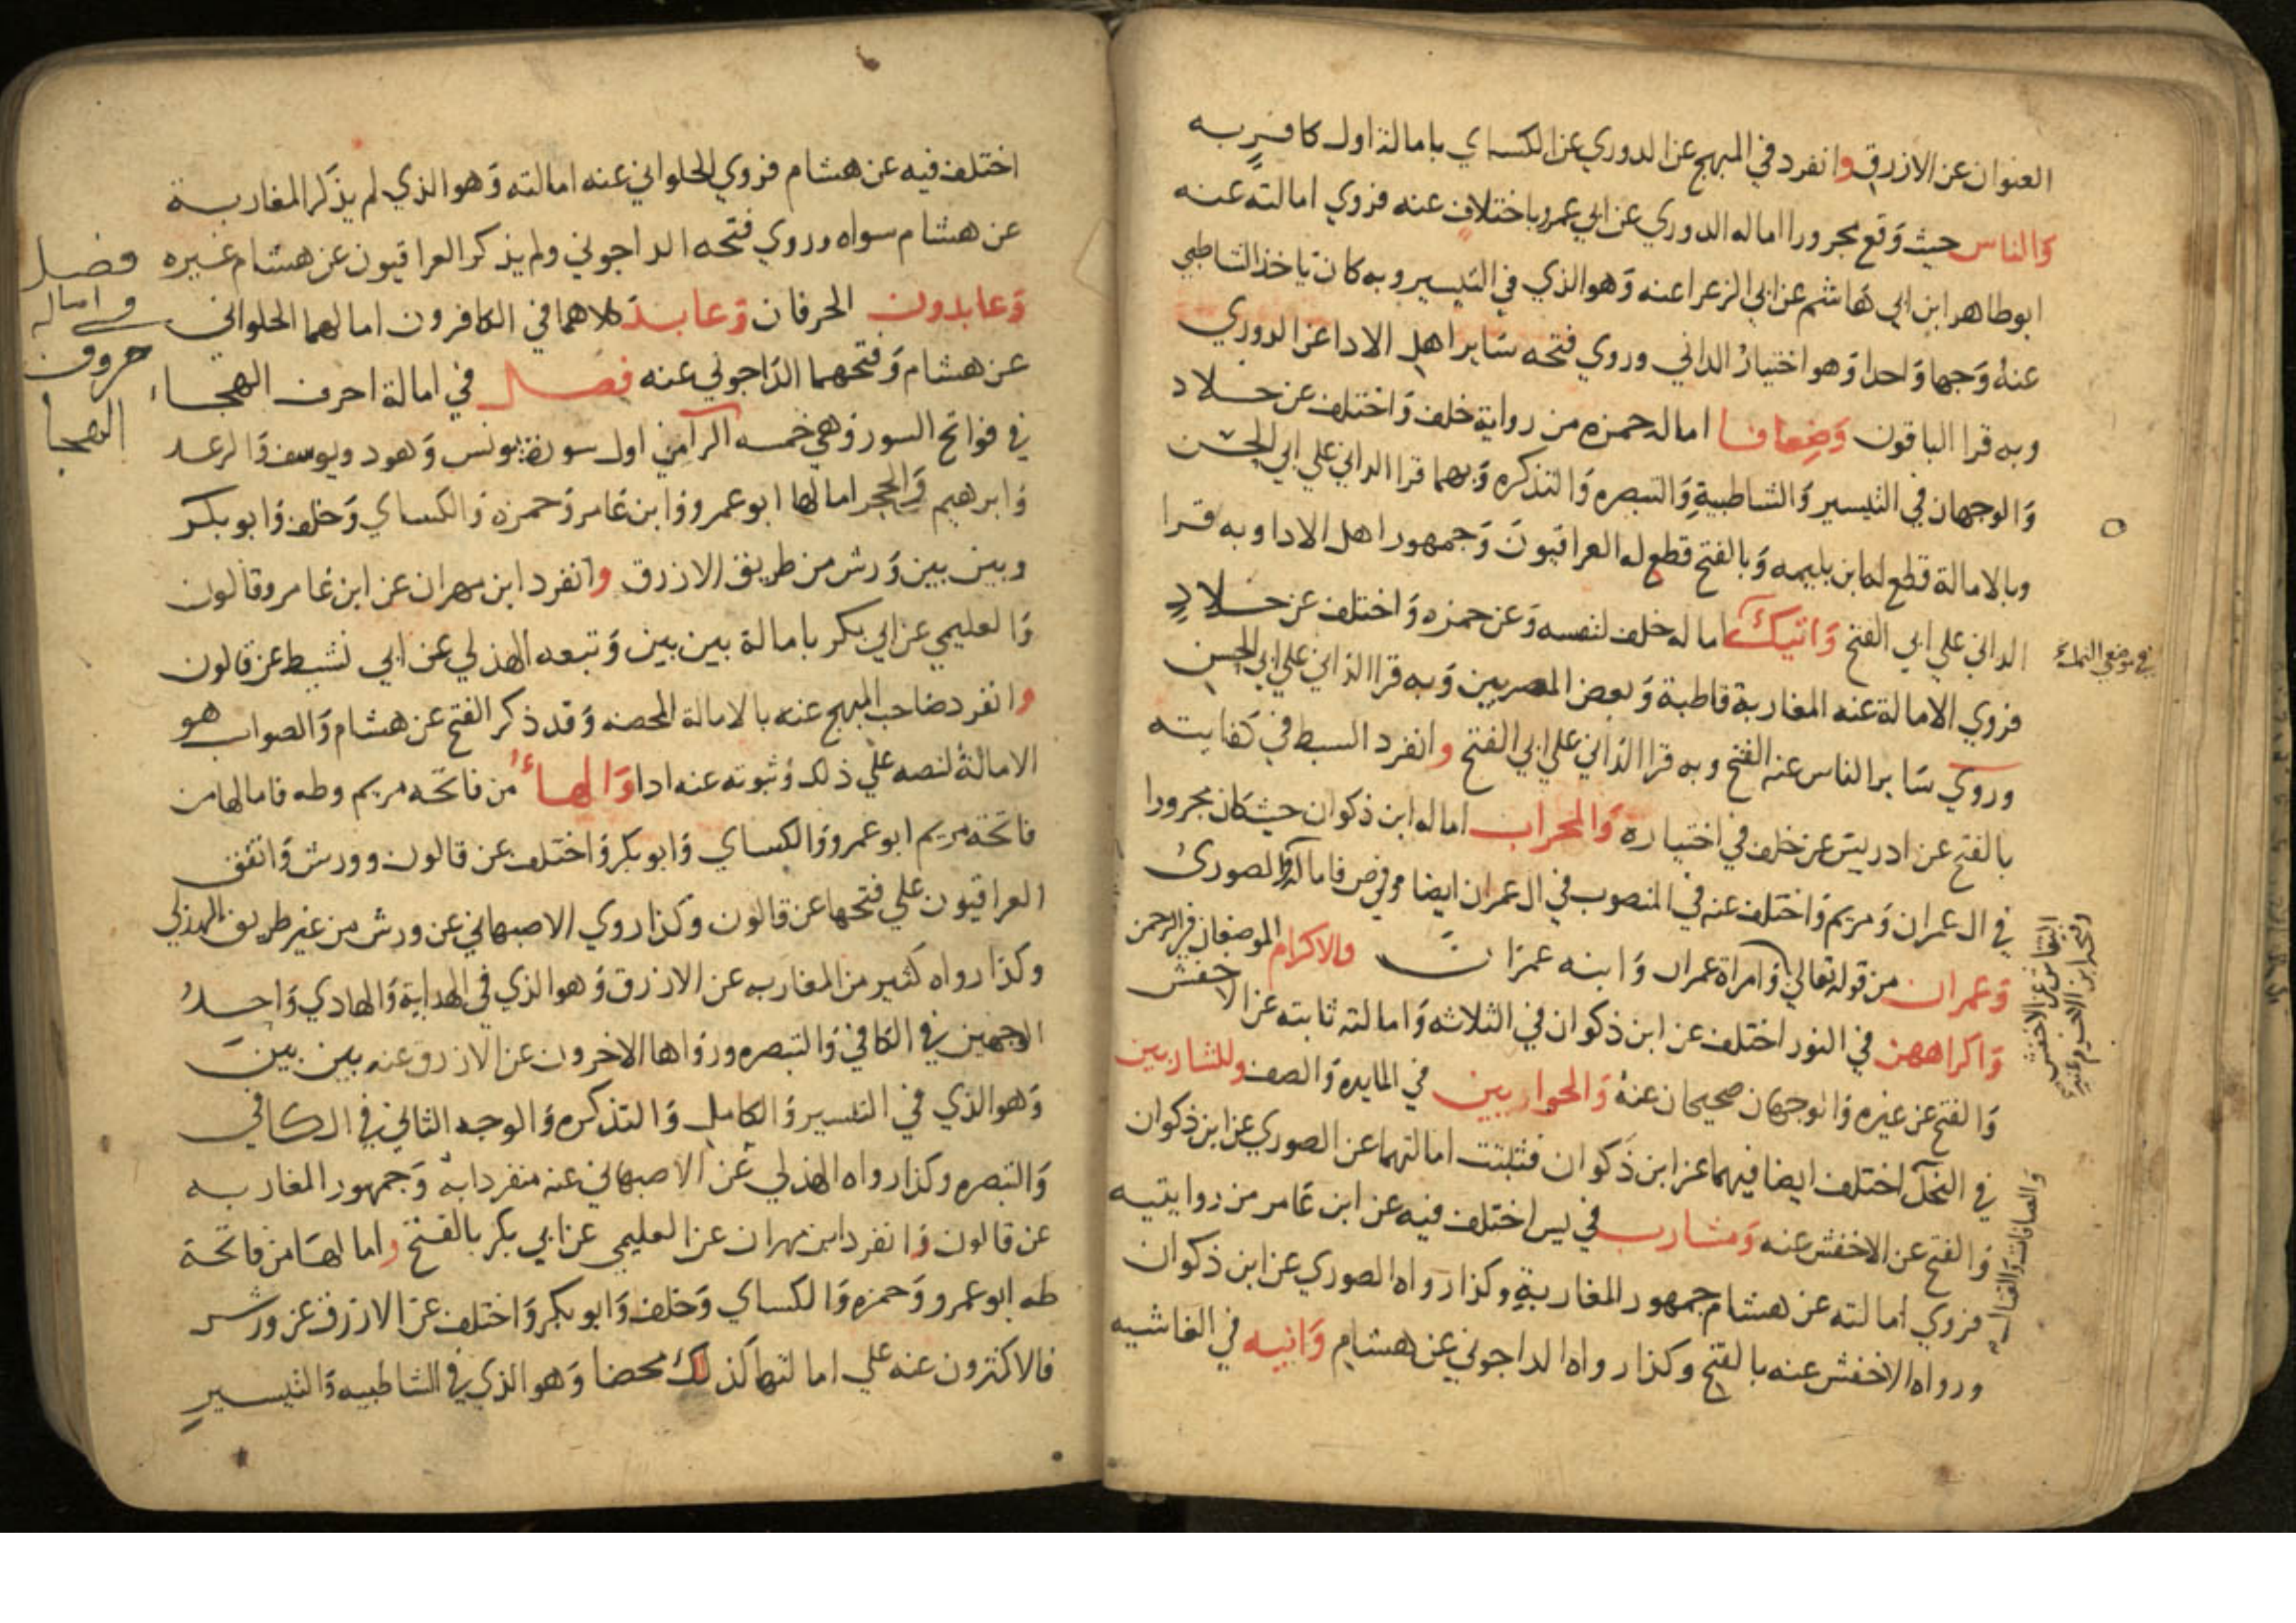 العنوان عن الازرق وانفرد في المبهج عن الدوري عن الكساي بامالة اول كافر به
والناس حيث وقع مجرورا اماله الدوري عن ابي عمرو باختلاف عنه فروي امالته عنه
ابو طاهر ابن ابي هاشم عن ابي الزعرا عنه وهو الذي في التيسير وبه كان ياخذ الشاطبي
عنه وجها واحدا وهو اختيار الداني وروي فتحه ساير اهل الادا عن الدوري
وبه قرا الباقون وضعافا اماله حمزه من رواية خلف واختلف عن خلاد
والوجهان في التيسير والشاطبية والتبصره والتذكره وبهما قرا الداني علي ابي الحسن
وبالامالة قطع له ابن بليمه وبالفتح قطع له العراقيون وجمهور اهل الادا وبه قرا
الداني علي ابي الفتح وآتيك اماله خلف لنفسه وعن حمزه واختلف عن خلاد
في موضعي النمل
فروي الامالة عنه المغاربة قاطبة وبعض المصريين وبه قرا الداني علي ابي الحسن
وروي ساير الناس عنه الفتح وبه قرا الداني علي ابي الفتح وانفرد السبط في كفايته
بالفتح عن ادريس عن خلف في اختياره والمحراب اماله ابن ذكوان حيث كان مجرورا
في ال عمران ومريم واختلف عنه في المنصوب في ال عمران ايضا وفي ص فاماله الصوري
النقاش عن الاخفش
وفتحه ابن الاخرم عنه
وعمران من قوله تعالي وامراة عمران وابنه عمران والاكرام الموضعان في الرحمن
واكراههن في النور اختلف عن ابن ذكوان في الثلاثه وامالته ثابته عن الاخفش
والفتح عن غيره والوجهان صحيحان عنه والحواريين في المايده والصف وللشاربين
في النحل اختلف ايضا فيهما عن ابن ذكوان فثبتت امالتهما عن الصوري عن ابن ذكوان
والصافات والقتال
والفتح عن الاخفش عنه ومشارب في يس اختلف فيه عن ابن عامر من روايتيه
فروي امالته عن هشام جمهور المغاربة وكذا رواه الصوري عن ابن ذكوان
ورواه الاخفش عنه بالفتح وكذا رواه الداجوني عن هشام وانيه في الغاشيه
اختلف فيه عن هشام فروي الحلواني عنه امالته وهو الذي لم يذكر المغاربة
عن هشام سواه وروي فتحه الداجوني ولم يذكر العراقيون عن هشام غيره
وعابدون الحرفان وعابد كلاهما في الكافرون امالهما الحلواني
عن هشام وفتحهما الداجوني عنه فصل في امالة احرف الهجاء
فصل
في امالة
حروف
الهجا
في فواتح السور وهي خمسه الر امن اول سورة يونس وهود ويوسف والرعد
وابرهيم والحجر امالها ابو عمرو وابن عامر وحمزه والكساي وخلف وابو بكر
وبين بين ورش من طريق الازرق وانفرد ابن مهران عن ابن عامر وقالون
والعليمي عن ابي بكر بامالة بين بين وتبعه الهذلي عن ابي نشيط عن قالون
وانفرد صاحب المبهج عنه بالامالة المحضه وقد ذكر الفتح عن هشام والصواب هو
الامالة لنصه علي ذلك وثبوته عنه ادا والهاء من فاتحه مريم وطه فامالها من
فاتحة مريم ابو عمرو والكساي وابو بكر واختلف عن قالون وورش واتفق
العراقيون علي فتحها عن قالون وكذا روي الاصبهاني عن ورش من غير طريق الهذلي
وكذا رواه كثير من المغاربه عن الازرق وهو الذي في الهداية والهادي واحد
الوجهين في الكافي والتبصره ورواها الاخرون عن الازرق عنه بين بين
وهو الذي في التيسير والكامل والتذكره والوجه الثاني في الكافي
والتبصره وكذا رواه الهذلي عن الاصبهاني عنه منفردا به وجمهور المغاربه
عن قالون وانفرد ابن مهران عن العليمي عن ابي بكر بالفتح وامالها من فاتحة
طه ابو عمرو وحمزه والكساي وخلف وابو بكر واختلف عن الازرق عن ورش
فالاكثرون عنه علي امالتها كذلك محضا وهو الذي في الشاطبيه والتيسير